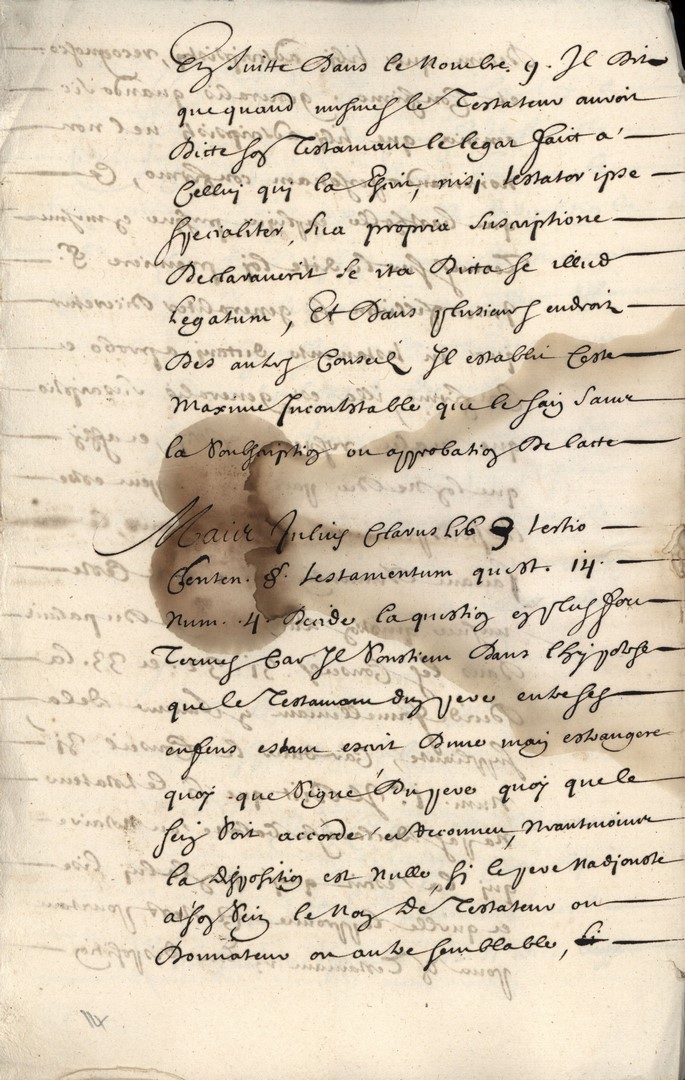 En suitte Dans le Nombre. 9. Il Dit
que quand mesmes le Testateur auroit
Dicté son Testamant le legat faict a
Celluy qui la Escrit, nisi testator ipse
specialiter, sua propria suscriptione
Declarauerit se ita Dictasse illud
legatum, Et Dans plusieurs endroits
Des autres Conseils Il establit Ceste
Maxime Incontestable que le sain sans
la Soubscription ou approbation De lacte
Mais Julius Clarus lib 3 tertio
Senten. §. testamentum quest. 14.
Num. .4. Decide la question en plus fort
Termes Car Il Soustient Dans lhypothese
que le Testamant Dun pere entre ses
enfens estant escrit Dune main estrangere
quoy que Signé Du pere quoy que le
sein Soit accordé et Reconneu, Neantmoins
la Disposition est Nulle, si le pere Nadjouste
a son Sein le Nom De Testateur ou
Donnateur ou autre semblable,
14